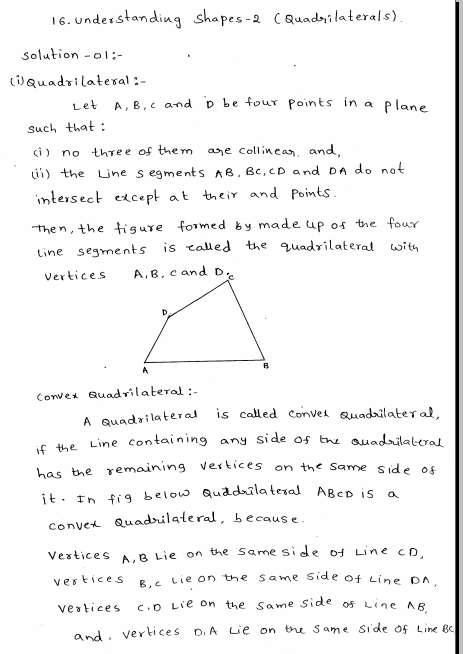 16. Understanding Shapes-2 (Quadrilaterals).
Solution -01:-
(i) Quadrilateral:-
Let A, B, C and D be four points in a plane
such that:
(i) no three of them are collinear. and,
(ii) the Line segments AB, BC, CD and DA do not
intersect except at their and points.
Then, the figure formed by made up of the four
Line segments is called the quadrilateral with
vertices A, B, C and D.
C
D
A
B
Convex Quadrilateral:-
A Quadrilateral is called Convex Quadrilateral,
if the Line containing any side of the quadrilateral
has the remaining vertices on the same side of
it. In fig below Quadrilateral ABCD is a
convex Quadrilateral, because.
Vertices A, B Lie on the same side of Line CD,
vertices B, C Lie on the same side of Line DA,
vertices C, D Lie on the same side of Line AB,
and. vertices D, A Lie on the same side of Line BC